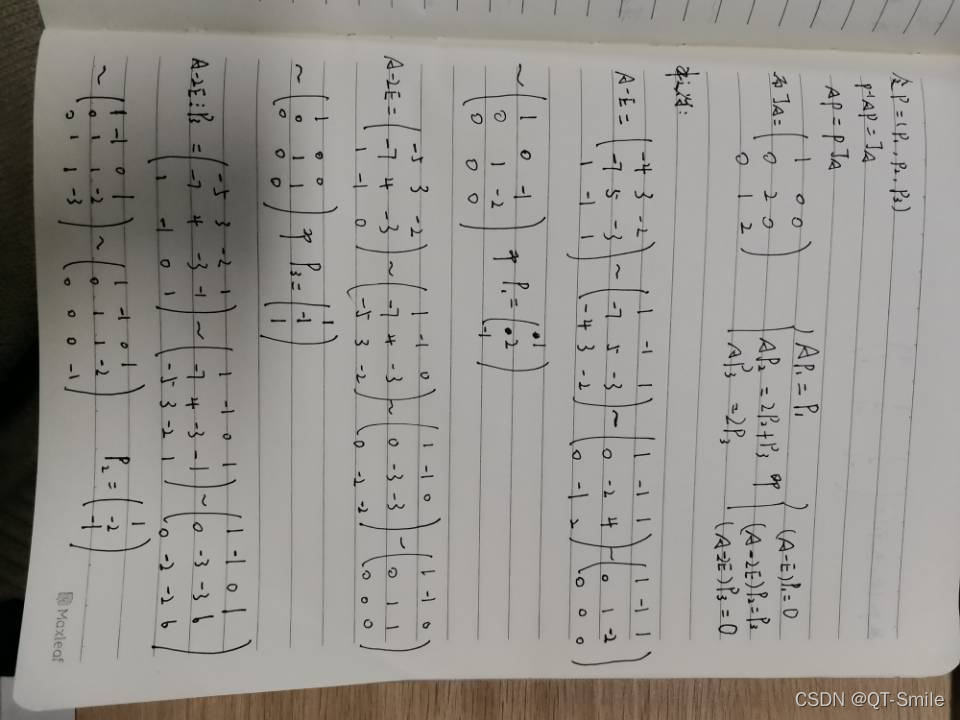 令P=(P₁, P₂, P₃)
P⁻¹AP=JA
AP=PJA
JA=(1 0 0
0 2 0
0 1 2)
{AP₁=P₁
AP₂=2P₂+P₃
AP₃=2P₃
即
{(A-E)P₁=0
(A-2E)P₂=P₃
(A-2E)P₃=0
A-E=(-4 3 -2
-7 5 -3
1 -1 1)~(1 -1 1
-7 5 -3
-4 3 -2)~(1 -1 1
0 -2 4
0 -1 2)~(1 -1 1
0 1 -2
0 0 0)
~(1 0 -1
0 1 -2
0 0 0) P₁=(1
2
-1)
A-2E=(-5 3 -2
-7 4 -3
1 -1 0)~(1 -1 0
-7 4 -3
-5 3 -2)~(1 -1 0
0 -3 -3
0 -2 -2)~(1 -1 0
0 1 1
0 0 0)
~(1 0
0 1 1
0 0 0) P₃=(1
-1
1)
A-2E⋮P₃=(-5 3 -2 1
-7 4 -3 -1
1 -1 0 1)~(1 -1 0 1
-7 4 -3 -1
-5 3 -2 1)~(1 -1 0 1
0 -3 -3 6
0 -2 -2 6)
~(1 -1 0 1
0 1 1 -2
0 1 1 -3)~(1 -1 0 1
0 1 1 -2
0 0 0 -1) P₂=(1
-2
-1)
Maxleaf
CSDN @QT-Smile